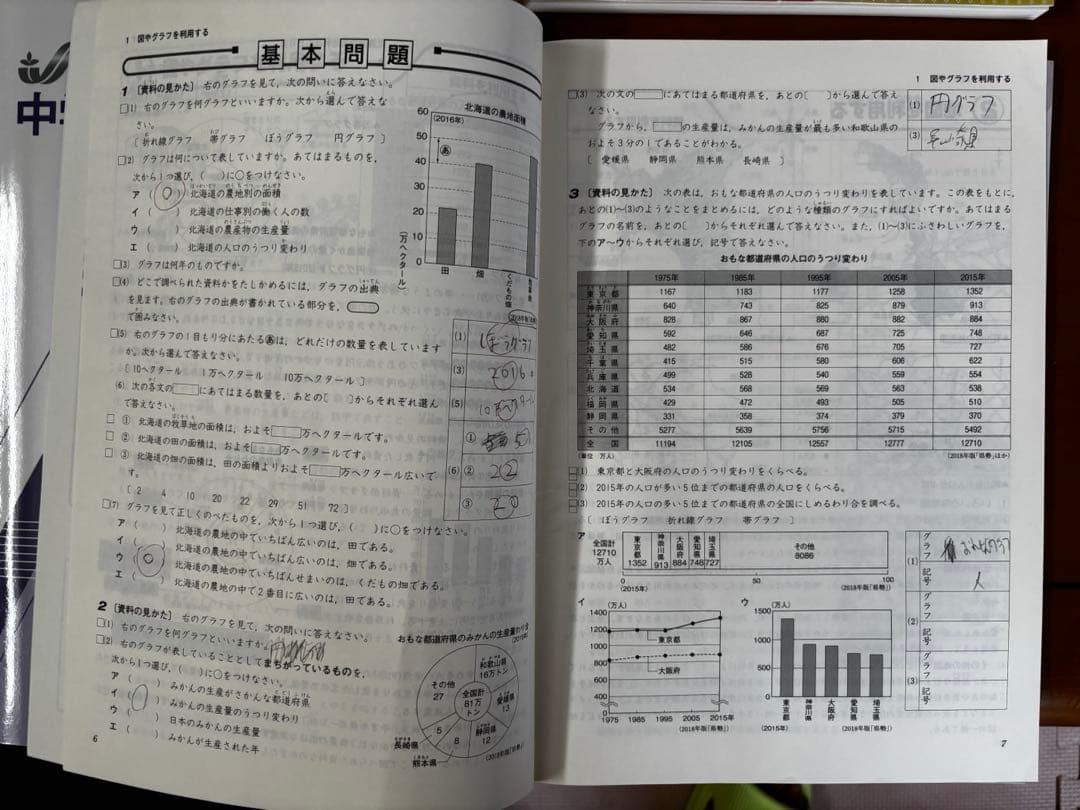 中
1 図やグラフを利用する
基本問題
1 [資料の見かた] 右のグラフを見て、次の問いに答えなさい。
□(1) 右のグラフを何グラフといいますか。次から選んで答えなさい。
[ 折れ線グラフ 帯グラフ ぼうグラフ 円グラフ ]
□(2) グラフは何について表していますか。あてはまるものを、
次から1つ選び、( )に○をつけなさい。
ア ( ○ ) 北海道の農地別の面積
イ ( ) 北海道の仕事別の働く人の数
ウ ( ) 北海道の農産物の生産量
エ ( ) 北海道の人口のうつり変わり
□(3) グラフは何年のものですか。
□(4) どこで調べられた資料かをたしかめるには、グラフの出典
を見ます。右のグラフの出典が書かれている部分を、
で囲みなさい。
□(5) 右のグラフの1目もり分にあたるあは、どれだけの数量を表しています
か。次から選んで答えなさい。
[ 10ヘクタール 1万ヘクタール 10万ヘクタール ]
(6) 次の各文の□にあてはまる数量を、あとの[ ]からそれぞれ選ん
で答えなさい。
□ ① 北海道の牧草地の面積は、およそ□万ヘクタールです。
□ ② 北海道の田の面積は、およそ□万ヘクタールです。
□ ③ 北海道の畑の面積は、田の面積よりおよそ□万ヘクタール広いで
す。
[ 2 4 10 20 22 29 51 72 ]
□(7) グラフを見て正しくのべたものを、次から1つ選び、( )に○をつけなさい。
ア ( ) 北海道の農地の中でいちばん広いのは、田である。
イ ( ) 北海道の農地の中でいちばん広いのは、畑である。
ウ ( ○ ) 北海道の農地の中でいちばんせまいのは、くだもの畑である。
エ ( ) 北海道の農地の中で2番目に広いのは、田である。
北海道の農地面積
(2016年)
60
50
40
30
20
10
0
(万ヘクタール)
あ
田
畑
くだもの畑
(1) ぼうグラフ
(3) 2016
(5) 10万ヘクタール
(6) ①
② 22
③ 20
2 [資料の見かた] 右のグラフを見て、次の問いに答えなさい。
□(1) 右のグラフを何グラフといいますか。
□(2) 右のグラフが表していることとしてまちがっているものを、
次から1つ選び、( )に○をつけなさい。
ア ( ) みかんの生産がさかんな都道府県
イ ( ) みかんの生産量のうつり変わり
ウ ( ) 日本のみかんの生産量
エ ( ) みかんが生産された年
おもな都道府県のみかんの生産量わり合
(2015年)
和歌山県
16万トン
愛媛県
13
静岡県
12
8
熊本県
5
長崎県
その他
27
全国計
81万
トン
6
1 図やグラフを利用する
□(3) 次の文の□にあてはまる都道府県を、あとの[ ]から選んで答え
なさい。
グラフから、□の生産量は、みかんの生産量が最も多い和歌山県の
およそ3分の1であることがわかる。
[ 愛媛県 静岡県 熊本県 長崎県 ]
(1) 円グラフ
(3)
3 [資料の見かた] 次の表は、おもな都道府県の人口のうつり変わりを表しています。この表をもとに、
あとの(1)~(3)のようなことをまとめるには、どのような種類のグラフにすればよいですか。あてはまる
グラフの名前を、あとの[ ]からそれぞれ選んで答えなさい。また、(1)~(3)にふさわしいグラフを、
下のア~ウからそれぞれ選び、記号で答えなさい。
おもな都道府県の人口のうつり変わり
1975年 1985年 1995年 2005年 2015年
東京都 1167 1183 1177 1258 1352
神奈川県 640 743 825 879 913
大阪府 828 867 880 882 884
愛知県 592 646 687 725 748
埼玉県 482 586 676 705 727
千葉県 415 515 580 606 622
兵庫県 499 528 540 559 554
北海道 534 568 569 563 538
福岡県 429 472 493 505 510
静岡県 331 358 374 379 370
その他 5277 5639 5756 5715 5492
全国 11194 12105 12557 12777 12710
(単位 万人) (2018年版「県勢」ほか)
□(1) 東京都と大阪府の人口のうつり変わりをくらべる。
□(2) 2015年の人口が多い5位までの都道府県の人口をくらべる。
□(3) 2015年の人口の多い5位までの都道府県の全国にしめるわり合を調べる。
[ ぼうグラフ 折れ線グラフ 帯グラフ ]
ア
全国計
12710
万人
東京都 1352
神奈川県 913
大阪府 884
愛知県 748
埼玉県 727
その他 8086
0 50 100
(2015年) (2018年版「県勢」)
イ
(万人)
1400
1200
1000
800
600
400
0
東京都
大阪府
1975 1985 1995 2005 2015年
(2018年版「県勢」)
ウ
(万人)
1500
1000
500
0
東京都
神奈川県
大阪府
愛知県
埼玉県
(2015年) (2018年版「県勢」)
(1) グラフ
記号
(2) グラフ
記号
(3) グラフ
記号
7